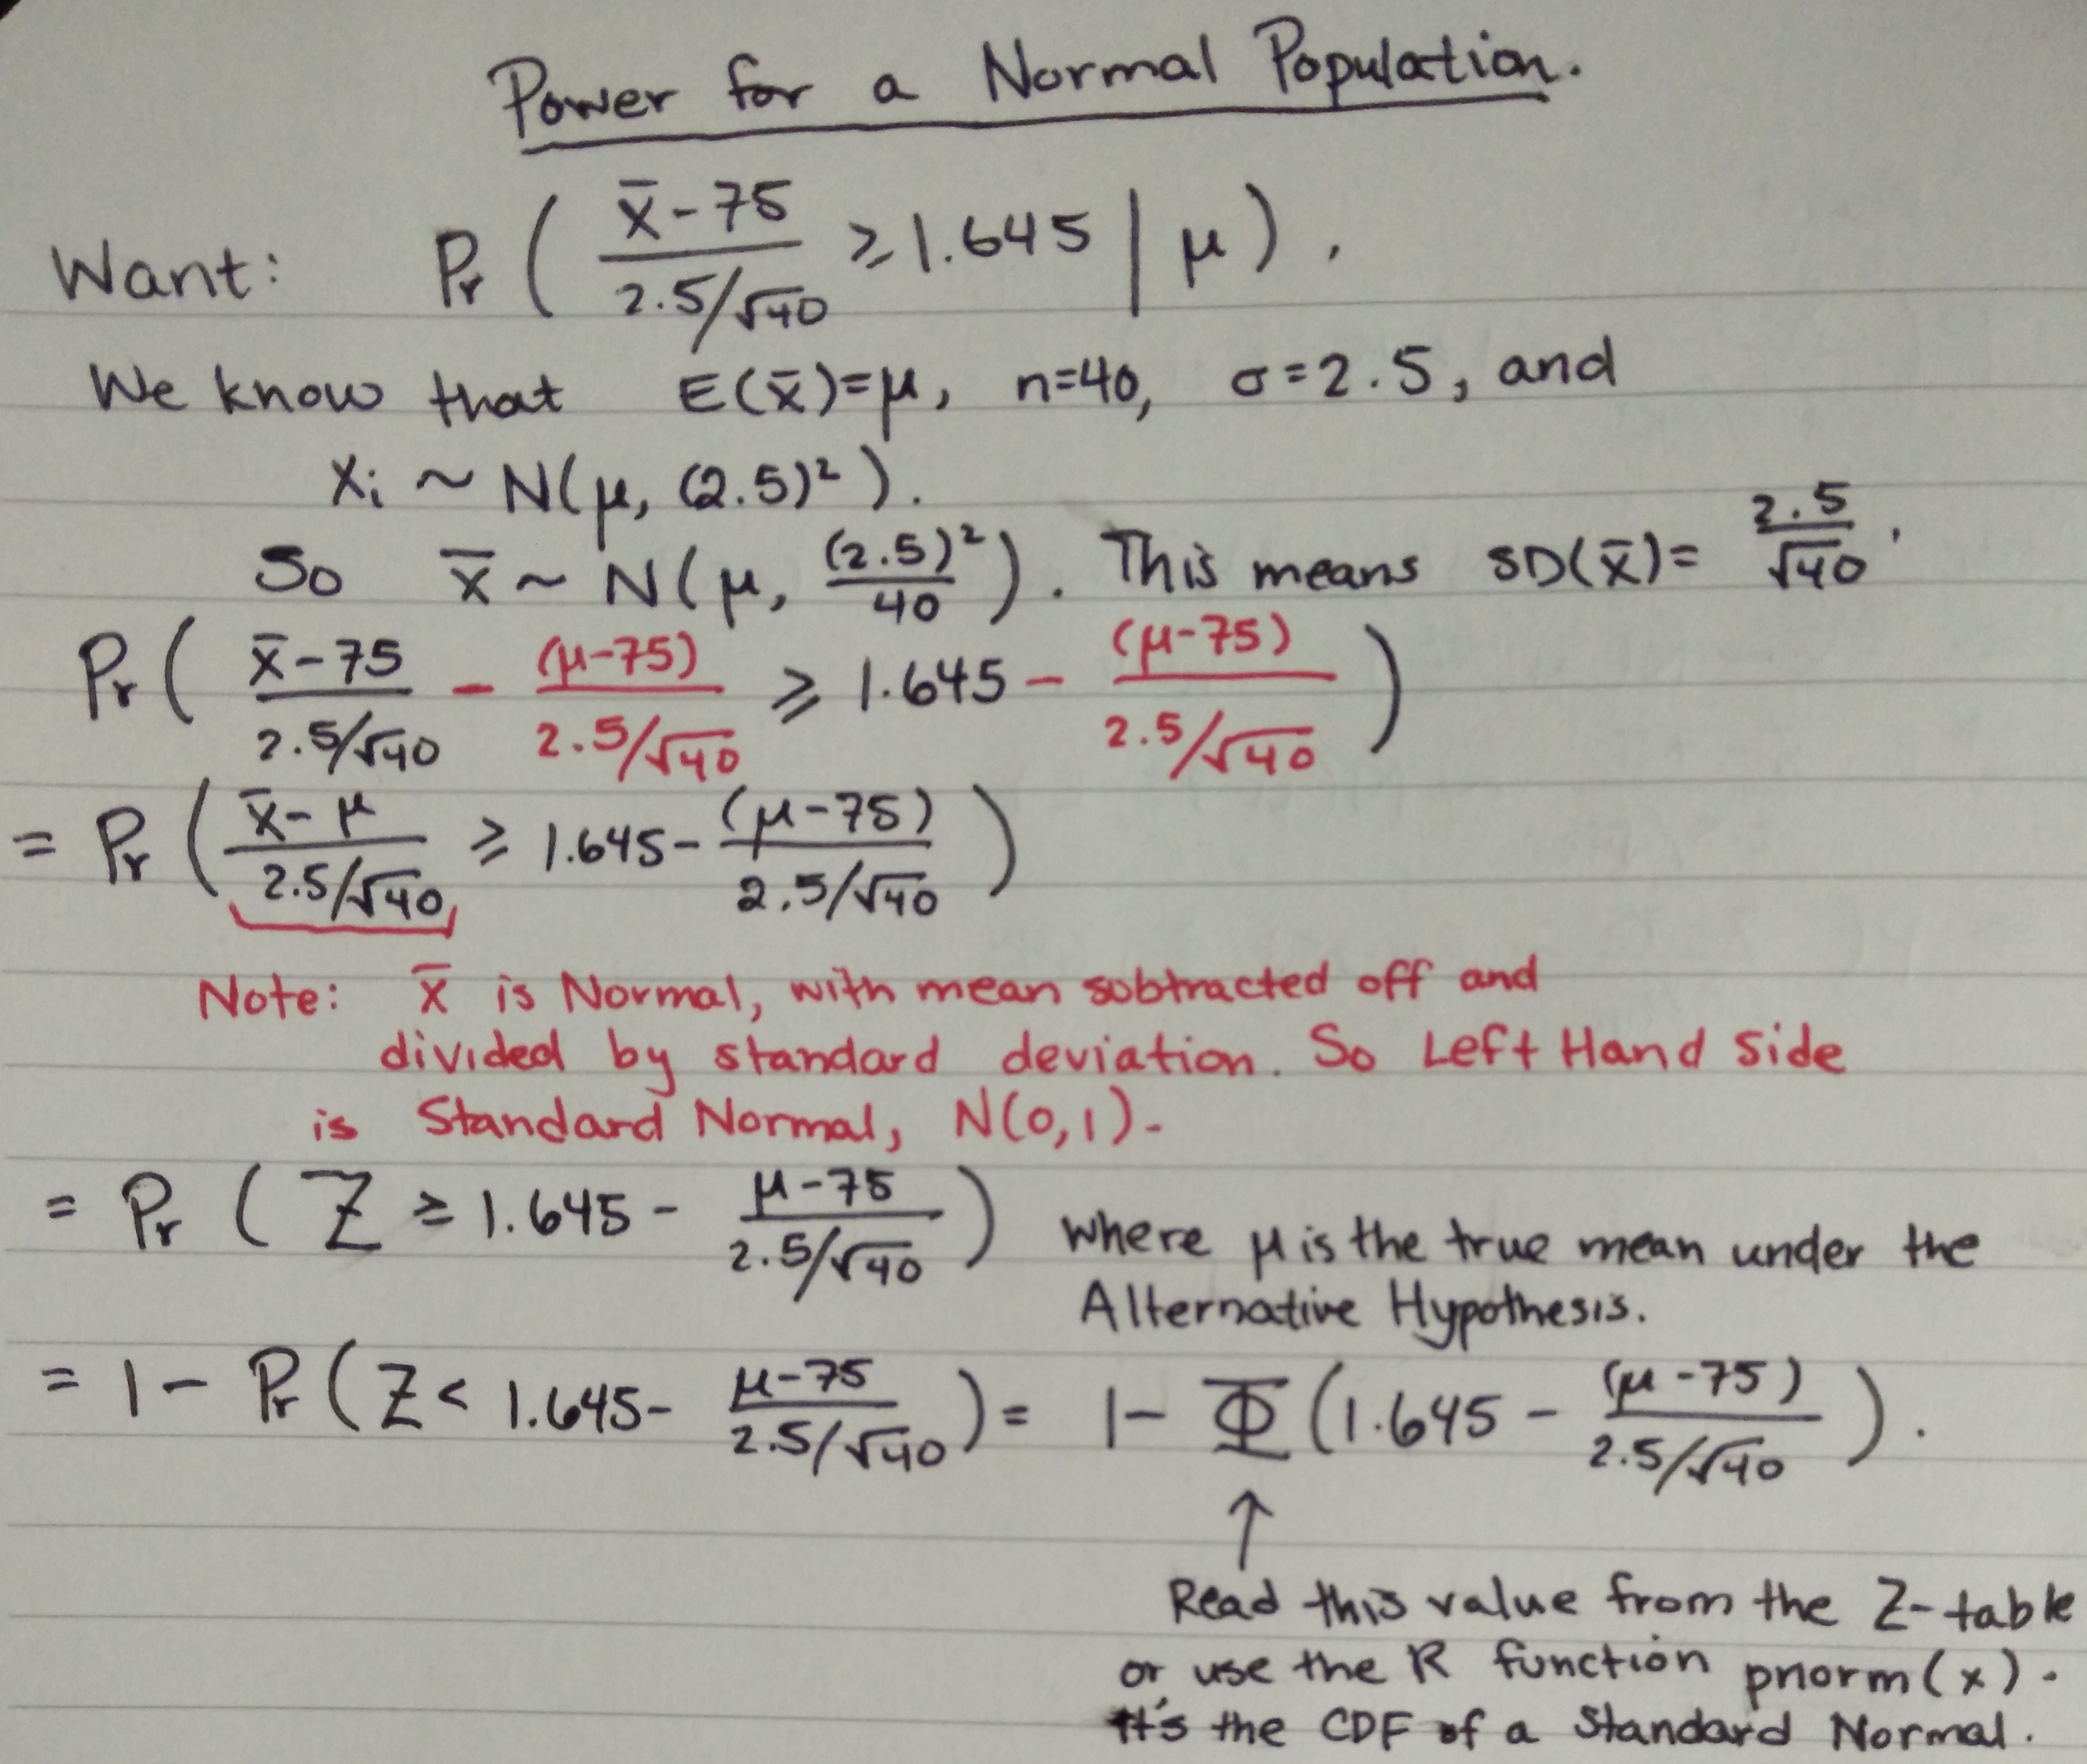 Power for a Normal Population.
Want: Pr( (x̄-75)/(2.5/√40) ≥ 1.645 | μ).
We know that E(x̄)=μ, n=40, σ=2.5, and
Xi ~ N(μ, (2.5)²).
So x̄ ~ N(μ, (2.5)²/40). This means SD(x̄)= 2.5/√40.
Pr( (x̄-75)/(2.5/√40) - (μ-75)/(2.5/√40) ≥ 1.645 - (μ-75)/(2.5/√40) )
= Pr( (x̄-μ)/(2.5/√40) ≥ 1.645 - (μ-75)/(2.5/√40) )
Note: x̄ is Normal, with mean subtracted off and
divided by standard deviation. So Left Hand Side
is Standard Normal, N(0,1).
= Pr( Z ≥ 1.645 - (μ-75)/(2.5/√40) ) where μ is the true mean under the
Alternative Hypothesis.
= 1 - Pr( Z < 1.645 - (μ-75)/(2.5/√40) ) = 1 - Φ(1.645 - (μ-75)/(2.5/√40) ).
↑
Read this value from the Z-table
or use the R function pnorm(x).
It's the CDF of a Standard Normal.